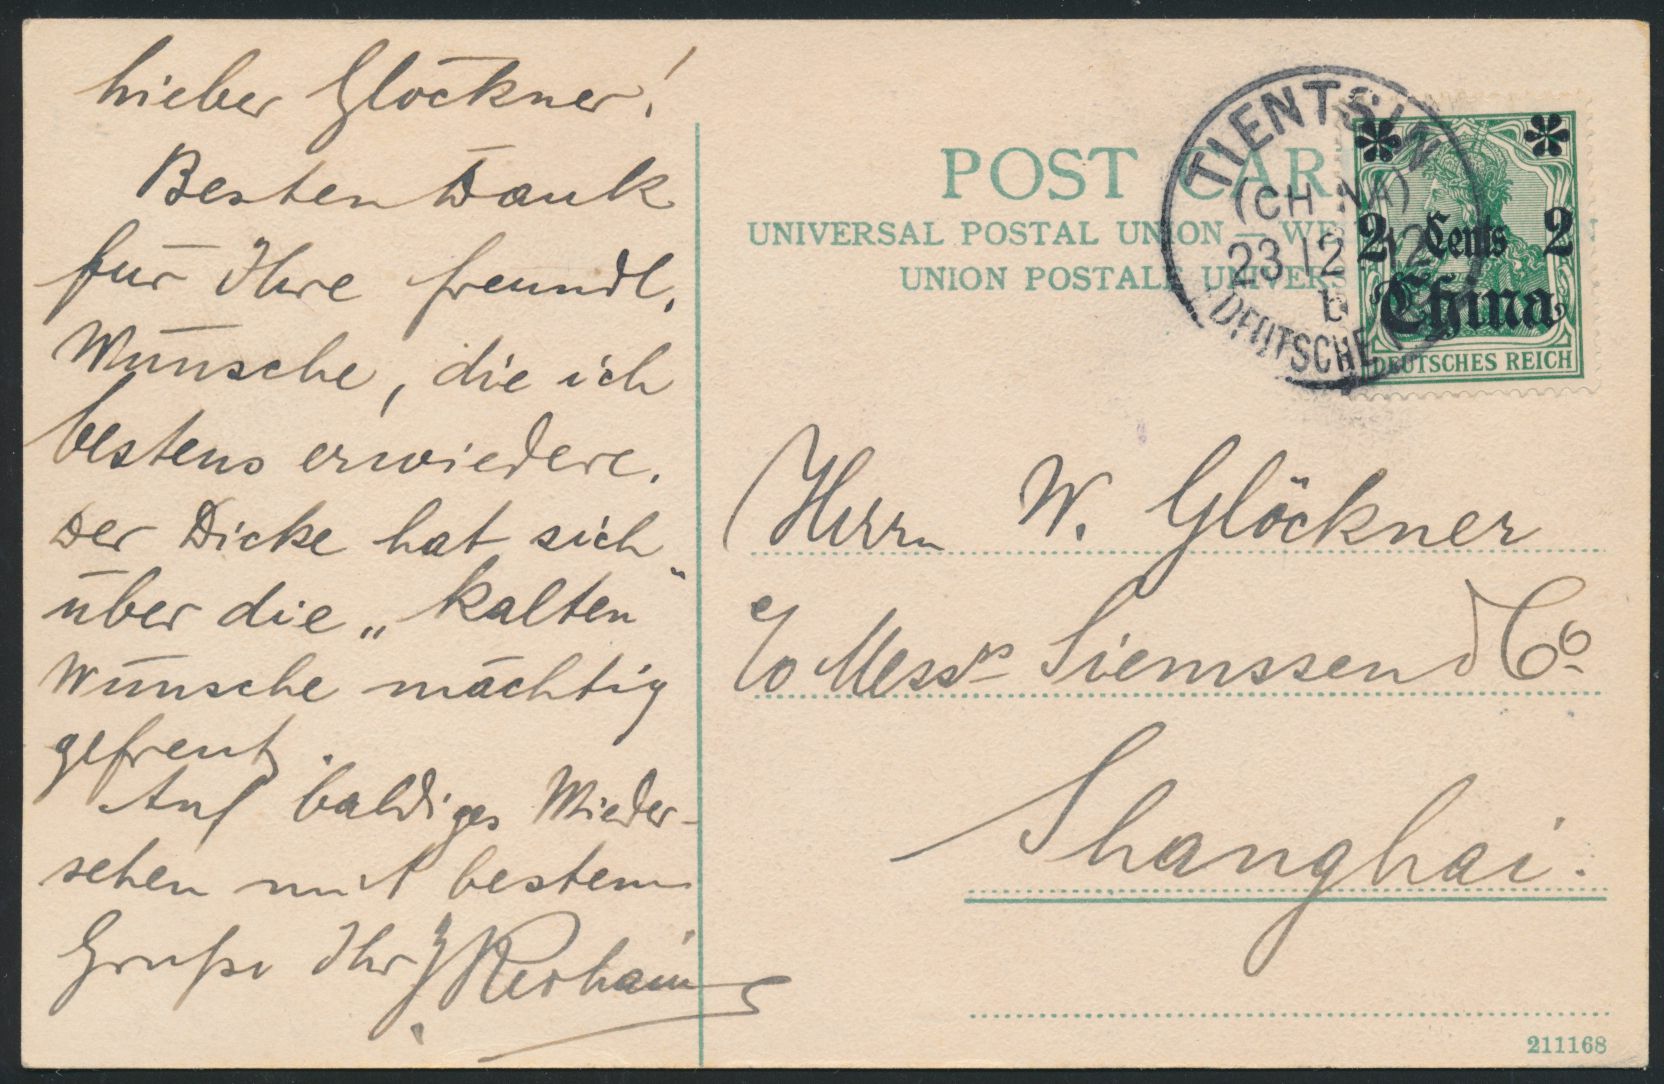 Lieber Glöckner!
Besten Dank
für Ihre freundl.
Wünsche, die ich
bestens erwiedere.
Der Dicke hat sich
über die „kalten"
Wünsche mächtig
gefreut.
Auf baldiges Wieder-
sehen mit bestem
Gruße Ihr
POST CAR
UNIVERSAL POSTAL UNION — WE
UNION POSTALE UNIVERS
TIENTSIN
(CHINA)
23 12 12
b
DEUTSCHE
2 Cents 2
China
DEUTSCHES REICH
Herrn W. Glöckner
c/o Messrs Siemssen & Co
Shanghai.
211168